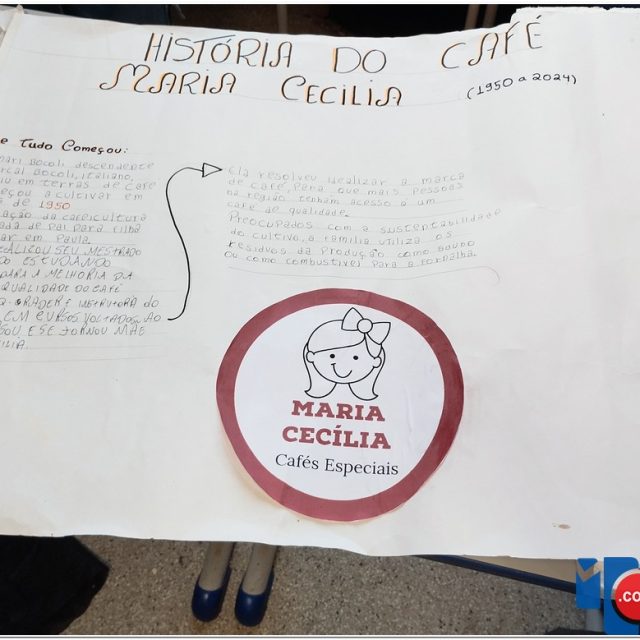 HISTÓRIA DO CAFÉ
MARIA CECÍLIA (1950 a 2024)
e Tudo Começou:
mari Bocoli descendente
rcal Bocoli, italiano,
iu em terras de café
eçou a cultivar em
a de 1950
ação da cafeicultura
ada de pai para filha
ar em Paula
ALIZOU SEU MESTRADO
DO ESTUDANDO
PARA A MELHORIA DA
QUALIDADE DO CAFÉ
Q-GRADER E INSTRUTORA DO
EM CURSOS VOLTADOS AO
SOU E SE TORNOU MÃE
ÍLIA.
Ela resolveu idealizar a marca
de café, para que mais pessoas
na região tenham acesso a um
café de qualidade.
Preocupados com a sustentabilidade
do cultivo, a família utiliza os
resíduos da produção como adubo
ou como combustível para a fornalha.
MARIA
CECÍLIA
Cafés Especiais
.co